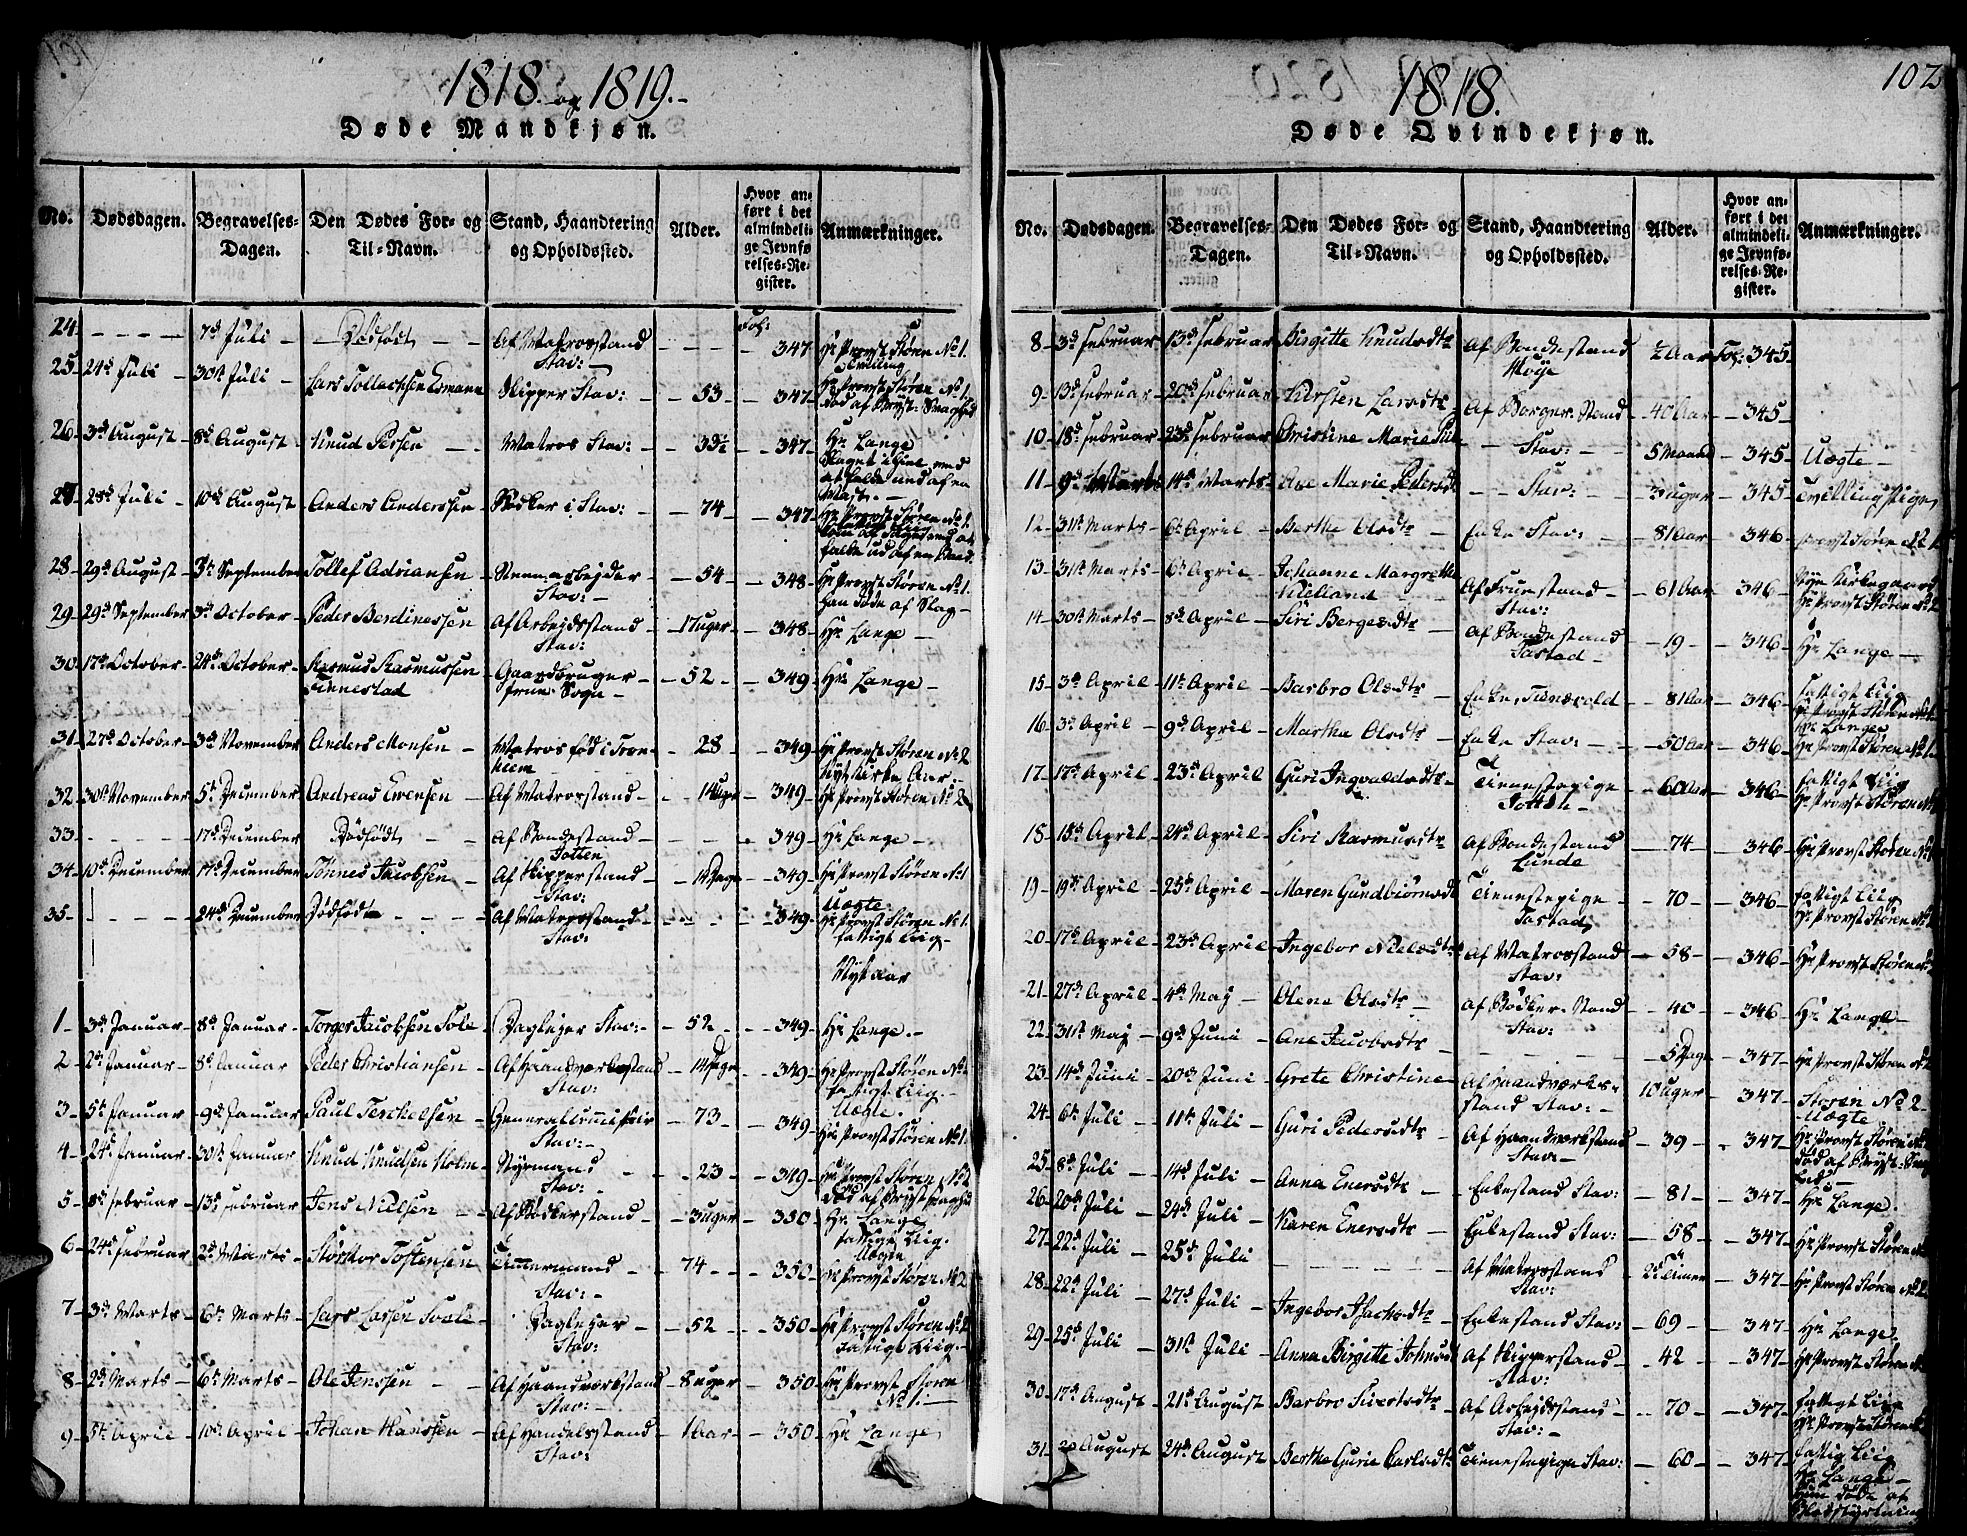 1818. og 1819.-
Døde Mandkjøn.
No. Dødsdagen. Begravelses-Dagen. Den Dødes For- og Til-Navn. Stand, Haandtering og Opholdssted. Alder. Hvor anført i det almindelige Jevnførelses-Register. Anmærkninger.
24 - - - - 7de Juli - Dødfødt - - Af Matrosstand Stav: - - - - Fol: 347 Hr Provst Støren No 1.
25 24de Juli - 30te Juli - Lars Tollachsen Skipper Stav: - 53 - 347 Hr Provst Støren No 1. død af Bryst-Svaghed
26 3de August - 8de August - Knud Persen - Matros Stav: - 33½ - 347 Hr Lange
27 28de Juli - 10de August Anders Anderssen Bødker i Stav: - 74 - 347 Hr Provst Støren No 1.
28 29de August - September Tollef Adriansen Steenarbejder Stav: - 54 - 348 Hr Provst Støren No 1. Han døde af Slag -
29 29de September 3de October Peder Berdinessen Af Arbejdsstand Stav: - 17 Uger - 348 Hr Lange -
30 17de October - 24de October - Rasmus Rasmussen Tinnestad Gaardbruger frue Sogn - 52 - 349 Hr Lange -
31 27de October - 3de November Anders Monsen - Matros fød i Tronhiem - 28 - 349 Hr Provst Støren No 2
32 30te November 5te December Andreas Evensen - Af Matrosstand - 349 Hr Provst Støren No 2
33 - - - - 17de December Dødfødt - Af Bondestand Totten - - - - 349 Hr Lange -
34 10de December 17de December Tønnes Jacobsen - Af Skipperstand Stav: - Dage - 349 Hr Provst Støren No 1 Uægte
35 - - - - 24de December Dødfødt - - Af Matrosstand Stav: - - - 349 Hr Provst Støren No 1. fattigt Liig -
Nyt aar
1 - 3de Januar - 8de Januar - Torger Jacobsen Sole - Daglejer Stav: - 52 - 349 Hr Lange. -
2 - 2de Januar - 8de Januar Peder Christiansen - Af Haandværksstand Stav: - 14 Dage - 349 Hr Provst Støren No fattigt Liig. - Uægte.
3 - 5te Januar - 9de Januar - Paul Terkelsen - Stav: - 73 - 349 Hr Provst Støren No 1.
4 - 24de Januar - 30te Januar Knud Knudsen Holm - Styrmand Stav: - 23 - 349 Hr Provst Støren No 2
5 8de Februar - 13de Februar Jens Nielsen - - Af Bødkerstand - 3 Uger - 350 Hr Lange fattige Liig. Uægte
6 24de Februar 2de Marts - Tostensen Timermand Stav: - 74 - 350 Hr Provst Støren No 2
7 - 3de Marts - 6te Marts - Lars Larsen - Daglejer Stav: - 52 - 350 Hr Provst Støren No fattigt Liig. -
8 2de Marts - 6te Marts - Ole Jenssen - Af Haandværksstand Stav: - 8 uger - 350 Hr Provst Støren No 1. -
9 5te April - 10de April - Johan Hanssen - Af Handelsstand Stav: - 1 Aar - 350 Hr Lange
1818.
102
Døde Qvindekjøn.
No. Dødsdagen. Begravelses-Dagen. Den Dødes For- og Til-Navn. Stand, Haandtering og Opholdssted. Alder. Hvor anført i det almindelige Jevnførelses-Register. Anmærkninger.
8 - 3de Februar 13de Februar Birgitte Knudsdtr Af Bondestand ½ Aar Fol: 345
9 - 13de Februar - 20de Februar Kirsten Larsdtr - Af Borger-Stand - 40 Aar - 345
10 - 18de Februar 23de Februar Christine Marie - Stav: - 5 Maaned - 345 Uægte -
11 9de Marts 14de Marts - Ane Marie Pedersdtr - - Stav: - 3 uger - 345 Tvilling Pige
12 - 31te Marts - 6te April - Berthe Olsdtr - Enke Stav: - 81 Aar - 346 Provst Støren No 2
13 31te Marts - 6te April - Johanne Margrethe Kielland Stav: - 61 Aar - 346 Nye Kirkegaard Hr Provst Støren No 2
14 30te Marts - 8de April - Siri Bergesdtr - Af Bondestand Tasted - 19 - 346 Hr Lange -
15 3de April - 11te April - Barbro Olsdtr - Enke - 81 Aar - 346 fattigt Liig Hr Provst Støren No
16 3de April - 9de April - Marthe Olsdtr - Enke Stav: - 50 Aar - 346 Hr Lange Hr Provst Støren No 1.
17 17de April - 23de April - Guri Ingvaldsdtr - Tienestepige Totten - 60 Aar - 346 fattigt Liig Hr Provst Støren No
18 15de April - 24de April - Siri Rasmusdtr Af Bondestand Lunde - 74 - 346 Hr Provst Støren No
19 19de April - 25de April - Maren Gundbiørnsdtr Tienestepige - Tasted - 70 - 346 fattigt Liig Hr Provst Støren No
20 17de April - 23de April - Ingebor Nielsdtr Af Matrosstand Stav: - 58 - 346 Hr Provst Støren No
21 - 27de April - 4de Maj - Olene Olsdtr - Af Bødker-Stand Stav: - 40 - 346 Hr Lange -
22 31te Maj - 9de Juni - Ane Jacobsdtr - - - - - Dage - 347 Hr Provst Støren No 2
23 14de Juni - 20de Juni - Grete Christine Af Haandværksstand Stav: - 10 Uger - 347 Støren No 2 - Uægte
24 6te Juli - 11te Juli - Guri Pedersdtr Af Haandværksstand Stav: - 39 - 347 Hr Provst Støren No død af Bryst-
25 8de Juli - 14de Juli - Anna Enersdtr - Enkestand Stav: - 81 - 347 Hr Lange.
26 20de Juli - 24de Juli - Karen Enersdtr - Enkestand Stav: - 58 - 347 Hr Provst Støren No
27 22de Juli - 25de Juli - - - - Af Matrosstand Stav: 2 Timer - 347 Hr Provst Støren No 2
28 22de Juli - 27de Juli - Ingebor Isachsdtr - Enkestand Stav: - 69 - 347 Hr Lange.
29 25de Juli - 31te Juli - Anna Birgitte Johnsdtr Af Skipperstand - Stav: - 42 - 347 Hr Provst Støren No
30 17de August - 21de August Barbro Sivertsdtr - Af Arbejdsstand - Stav: - 70 - 347 fattigt Liig Hr Provst Støren No
31 20 August 24de August Berthe Gurie Carlsdtr Tienestepige Stav: - 60 - 347 fattig Liig Hr Lange - Hun døde af